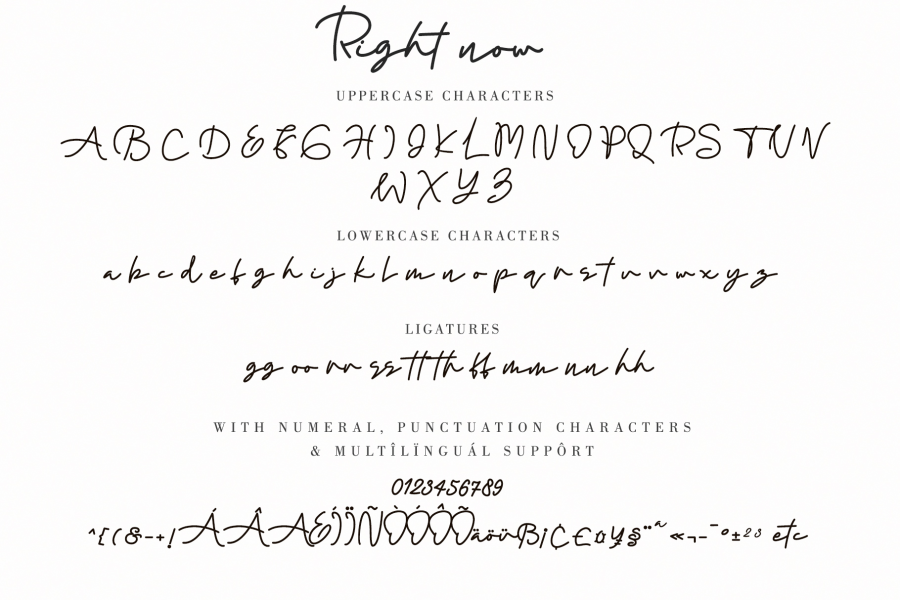 Right now
UPPERCASE CHARACTERS
A B C D E F G H I J K L M N O P Q R S T U V
W X Y Z
LOWERCASE CHARACTERS
a b c d e f g h i j k l m n o p q r s t u v w x y z
LIGATURES
gg oo rr ss tt th ff mm nn hh
WITH NUMERAL, PUNCTUATION CHARACTERS
& MULTÎLÏNGUÁL SUPPÔRT
0123456789
^{(&-+!ÁÂÄÉÍÏÑÒÓÔÕäöüß¡₵£¤¥§¨ª«¬-¯°±²³ etc